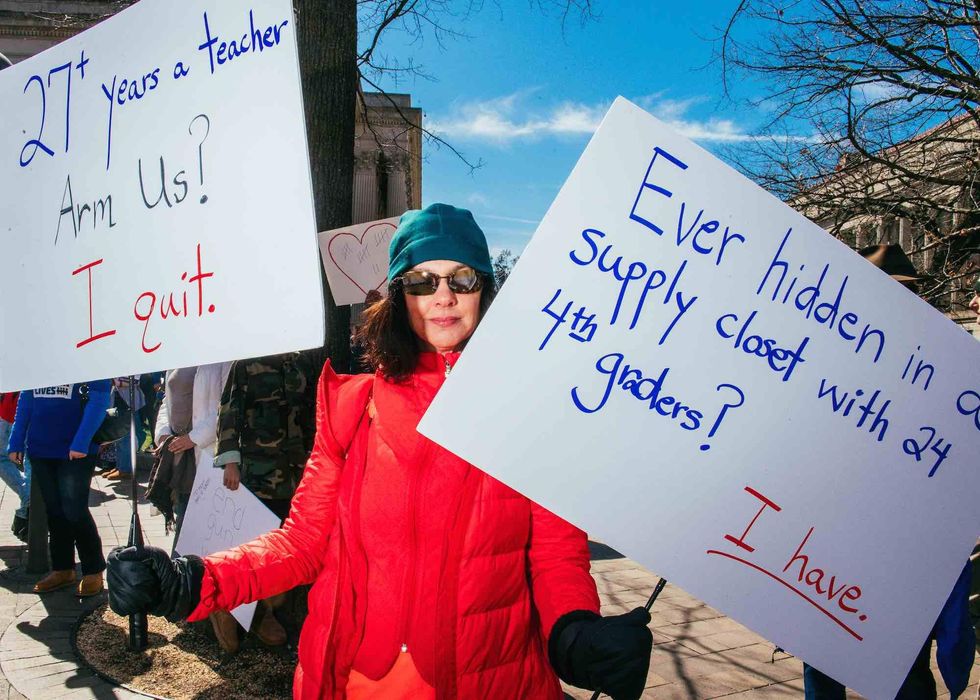 27+ years a teacher
Arm Us?
I quit.
Ever hidden in a
supply closet with 24
4th graders?
I have.
LIVES